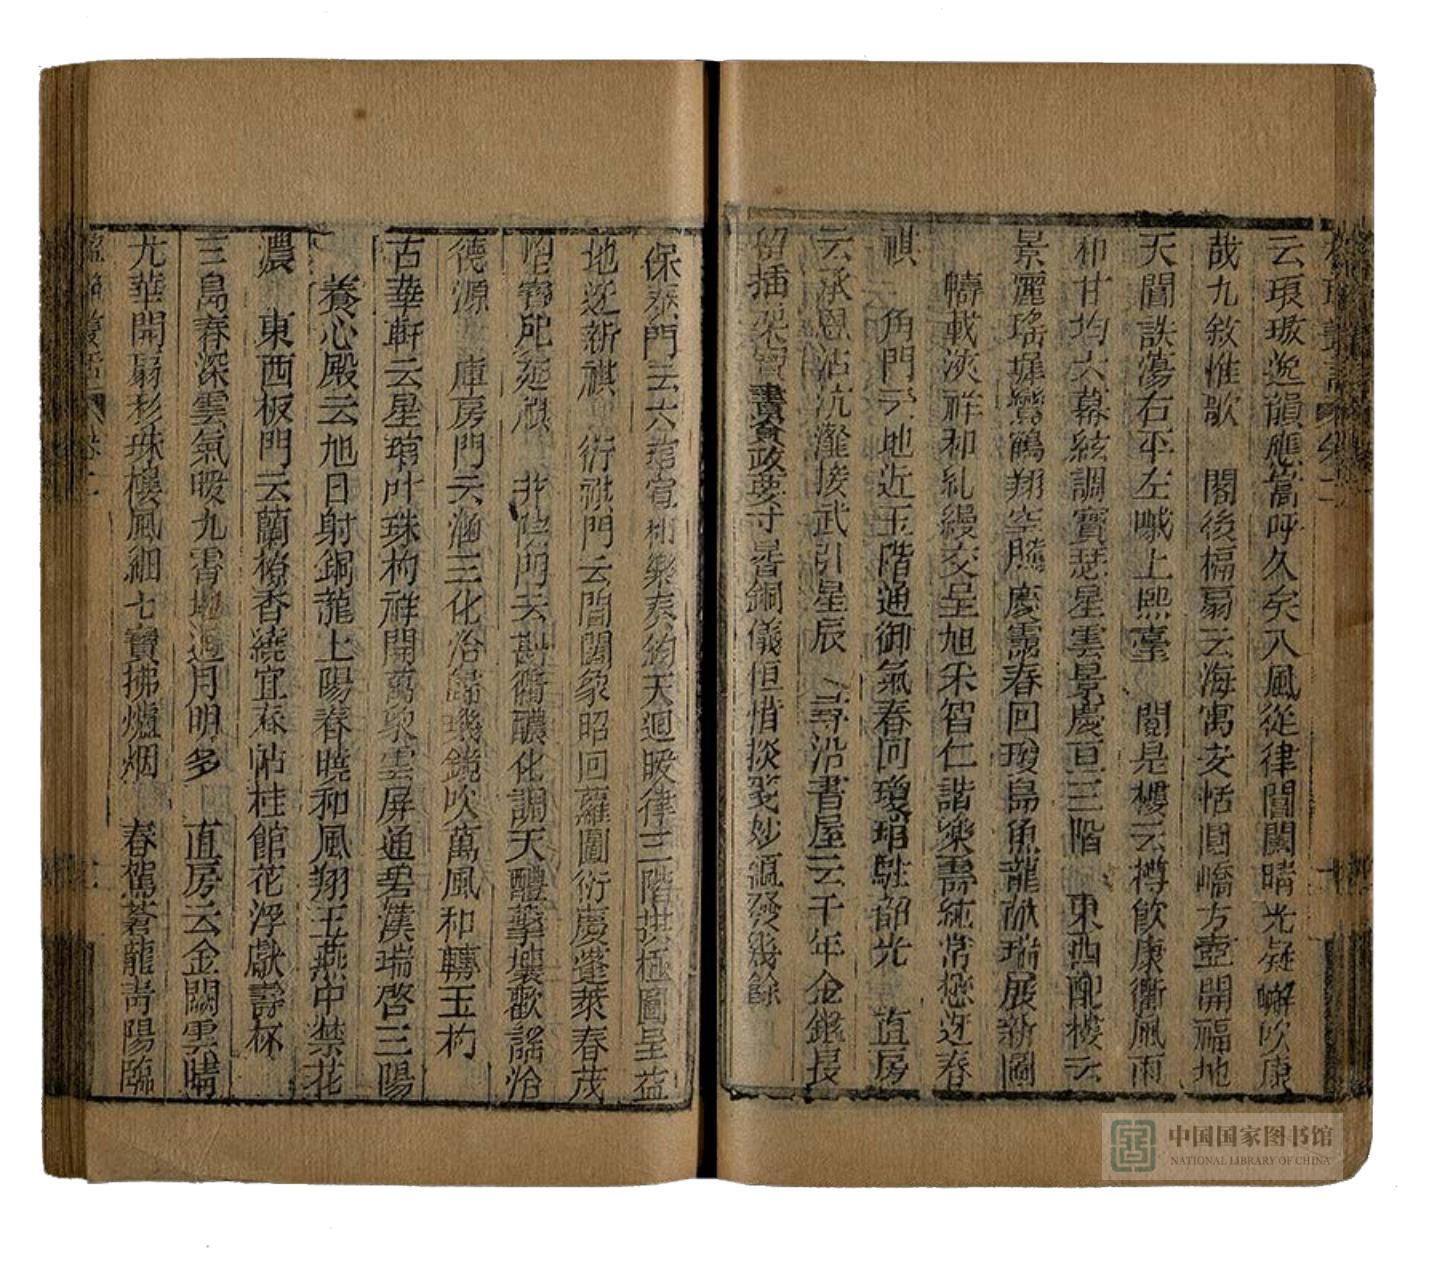 云琅璈迎韻應嵩呼久矣入風從律閶闔晴光凝嶰吹康
哉九敘惟歌　閣後槅扇云海寓安恬圓嶠方壺開福地
天閶詄蕩右平左墄上熙臺　閱是樓云樽飮康衢風雨
和甘均大幕絃調寶瑟星雲景慶亘三階　東西配樓云
景麗瑤墀鸞鶴翔空騰慶靄春回瑷島魚龍獻瑞展新圖
幬載浹祥和糺縵交呈旭采智仁諧樂壽純常懋迓春
祺　角門云地近玉階通御氣春回瓊琯駐韶光　直房
云承恩沾沆瀣接武引星辰　尋沿書屋云千年金鑑長
畱插架寶書資政要寸晷銅儀恒惜掞箋妙諷發幾餘
保泰門云六琯宣和樂奏鈞天迴暖律三階拱極圖呈益
地迓新祺　衍祺門云閶闔象昭回蘿圖衍慶蓬萊春茂
怡賽祝延祺　北牲門云斟衢醲化調天醴擊壤歡謠洽
德源　庫房門云涵三化洽歸璣鏡吹萬風和轉玉杓
古華軒云星琯叶珠杓祥開萬象雲屏通碧漢瑞啓三陽
養心殿云旭日射銅龍上陽春曉和風翔玉燕中禁花
濃　東西板門云蘭橑香繞宜春帖桂館花浮獻壽杯
三島春深雲氣暖九霄地迥月明多　直房云金闕雲晴
九華開扇影珠樓風細七寶拂爐烟　春駕蒼龍靑陽臨